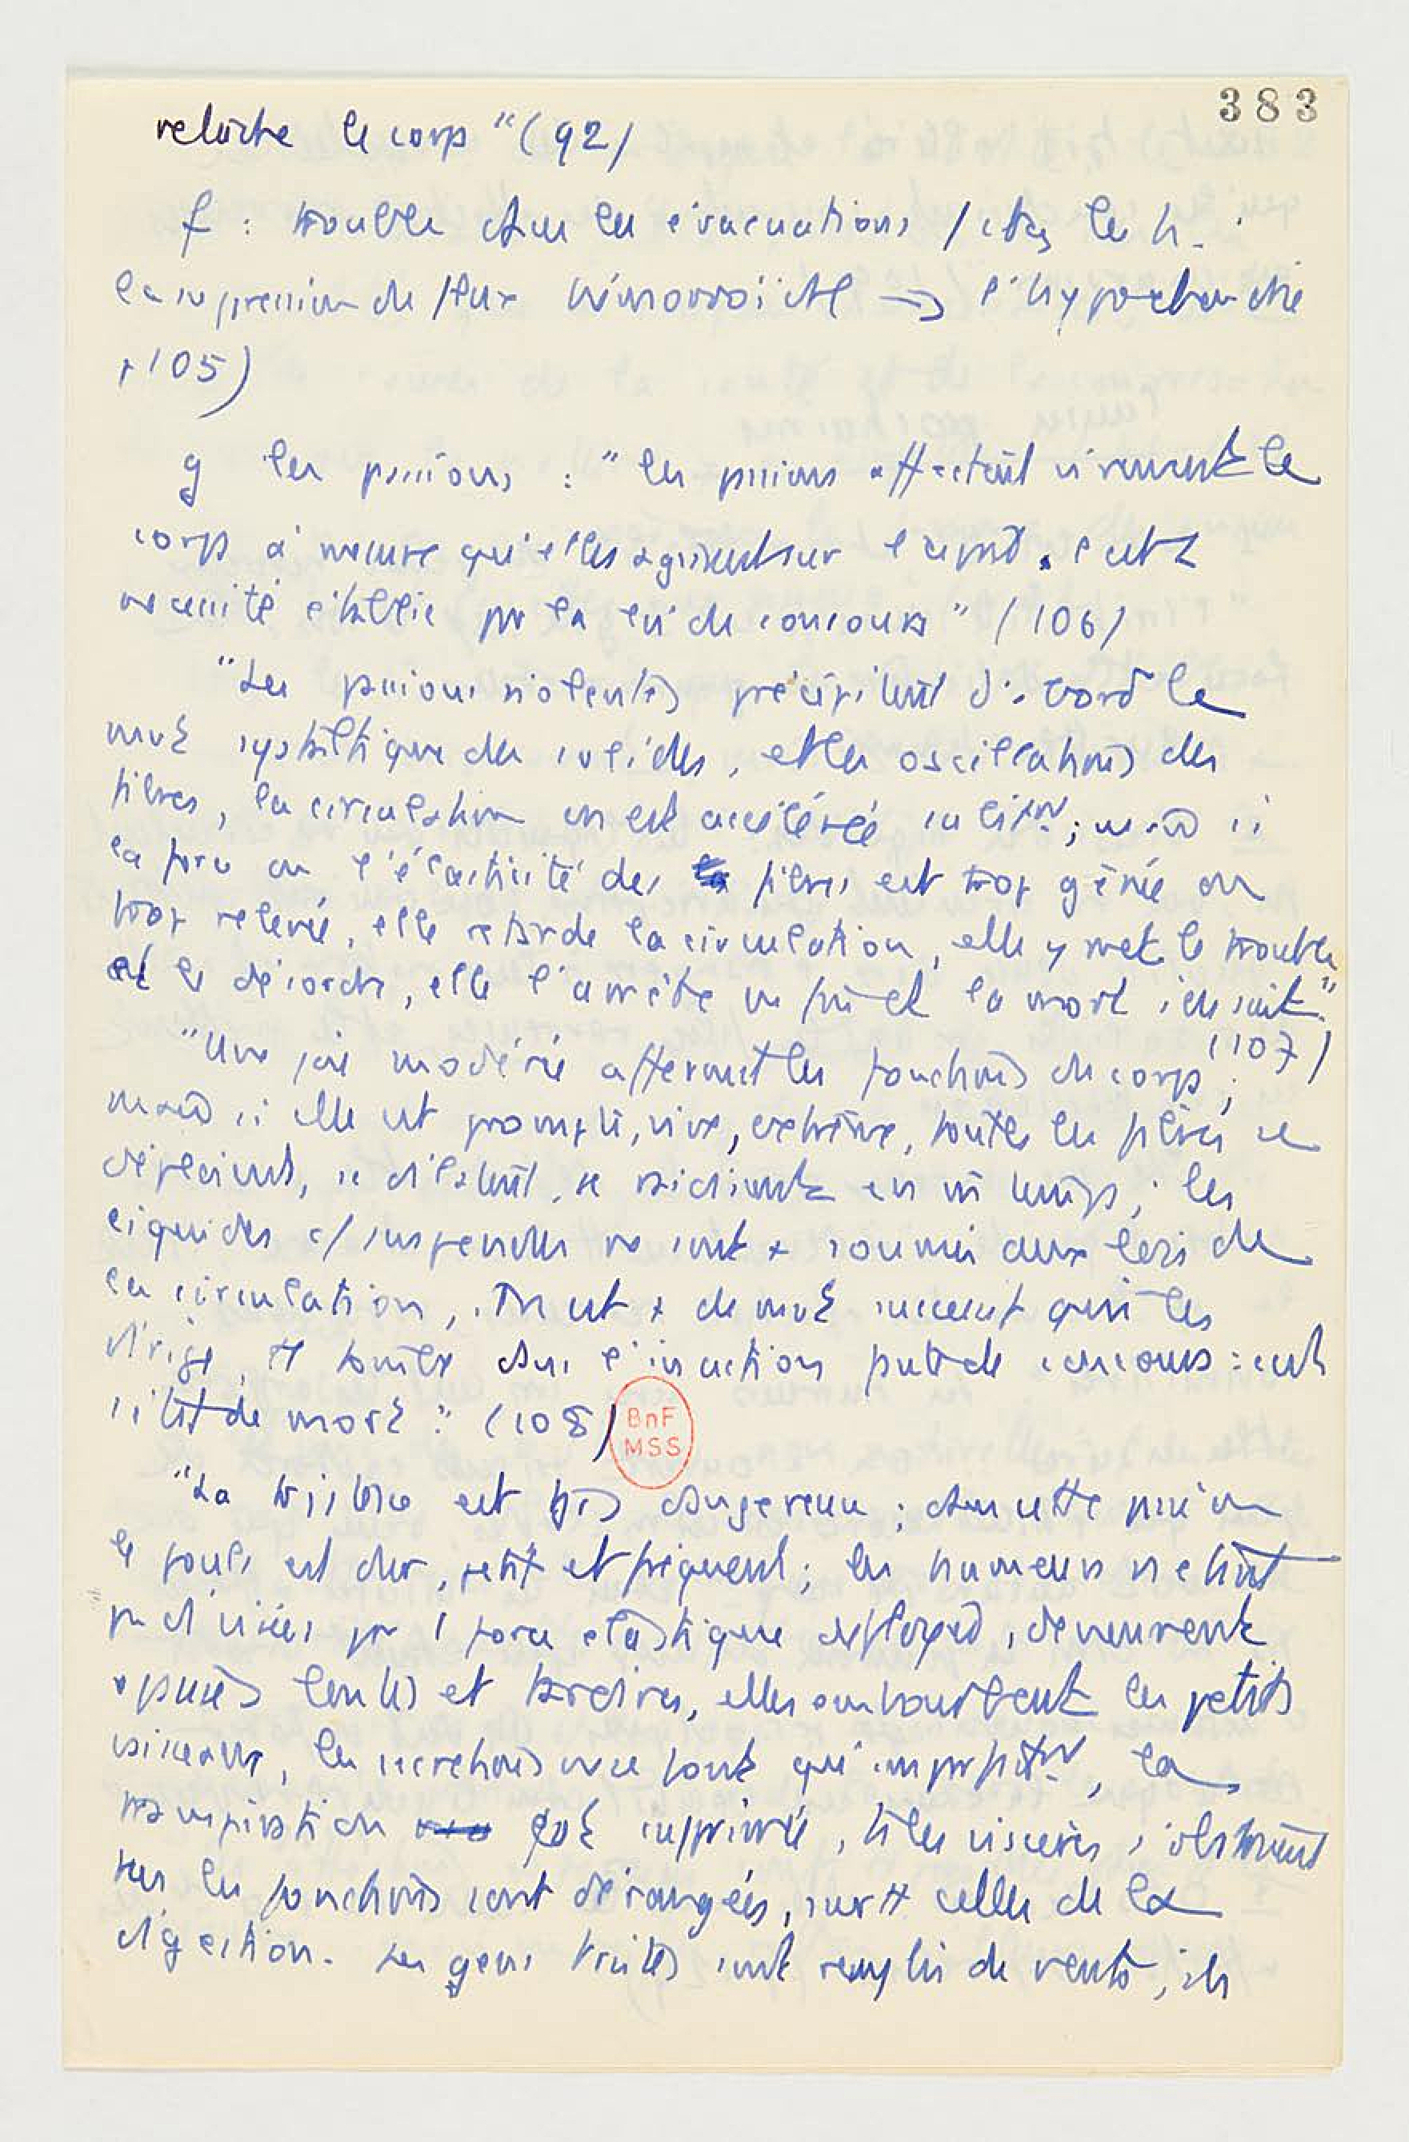 383
relâche le corps" (92)
f : trouble dans les évacuations (chez les h. :
la suppression du flux hémorroïdal → l'hypochondrie
105)
g les passions : "les passions affectent vivement le
corps à mesure qu'elles agissent sur l'esprit. C'est 1
nécessité établie par la loi du concours" (106)
"Les passions violentes précipitent d'abord le
mvt systaltique des solides, et les oscillations des
fibres, la circulation en est accélérée ; mais si
la force ou l'élasticité des fibres est trop gênée ou
trop relevée, elle retarde la circulation, elle y met le trouble
et le désordre, elle l'arrête enfin et la mort s'ensuit."
(107)
"Une joie modérée affermit les fonctions du corps ;
mais si elle est prompte, vive, extrême, toutes les fibres se
déploient, se dilatent, se roidissent en m temps ; les
liquides c/ suspendus ne sont + soumis aux lois de
la circulation, il n'est + de mvt successif qui les
dirige, tt tombe dans l'inaction faute de concours : c'est
l'état de mort." (108)
BnF
MSS
"La tristesse est très dangereuse ; dans cette passion
le pouls est dur, petit et fréquent ; les humeurs n'étant
pas divisées par 1 force élastique déployée, demeurent
épaisses lentes et tardives, elles embourbent les petits
vaisseaux, les sécrétions ne se font qu'imparfaitmt, la
transpiration est supprimée, les viscères s'obstruent
les fonctions sont dérangées, surtt celles de la
digestion. Les gens tristes sont remplis de vents, ils